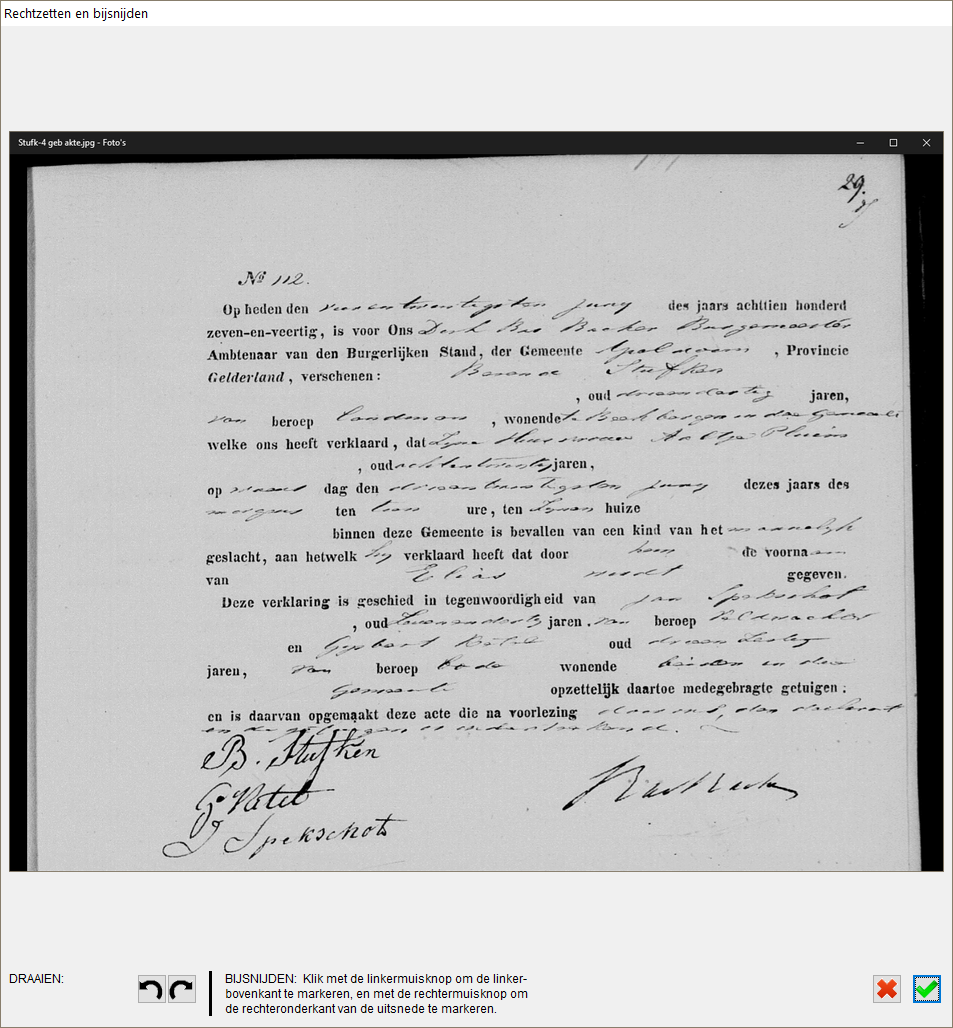 Rechtzetten en bijsnijden
Stufk-4 geb akte.jpg - Foto's
29.
No 112.
Op heden den vier en twintigsten Juny des jaars achttien honderd
zeven-en-veertig, is voor Ons Derk Bas Backer Burgemeester
Ambtenaar van den Burgerlijken Stand, der Gemeente Apeldoorn , Provincie
Gelderland, verschenen: Berend Stufken
, oud drieendertig jaren,
van beroep landman , wonende te Beekbergen in dee Gemeente
welke ons heeft verklaard, dat zyne Huisvrouw Aaltje Pluim
, oud achtentwenty jaren,
op dag den drieentwintigsten Juny dezes jaars des
morgens ten tien ure, ten zynen huize
binnen deze Gemeente is bevallen van een kind van het mannelyk
geslacht, aan hetwelk hy verklaard heeft dat door hem de voornaam
van Elias wordt gegeven.
Deze verklaring is geschied in tegenwoordigheid van Jan Spekschot
, oud zevenendertig jaren, van beroep Veldwachter
en Gysbert oud drieendertig
jaren, van beroep bode wonende beiden in dee
Gemeente opzettelijk daartoe medegebragte getuigen;
en is daarvan opgemaakt deze acte die na voorlezing door ons, den declarant
en de getuigen is onderteekend.
B. Stufken
G
J Spekschot
DRAAIEN:
BIJSNIJDEN: Klik met de linkermuisknop om de linker-
bovenkant te markeren, en met de rechtermuisknop om
de rechteronderkant van de uitsnede te markeren.